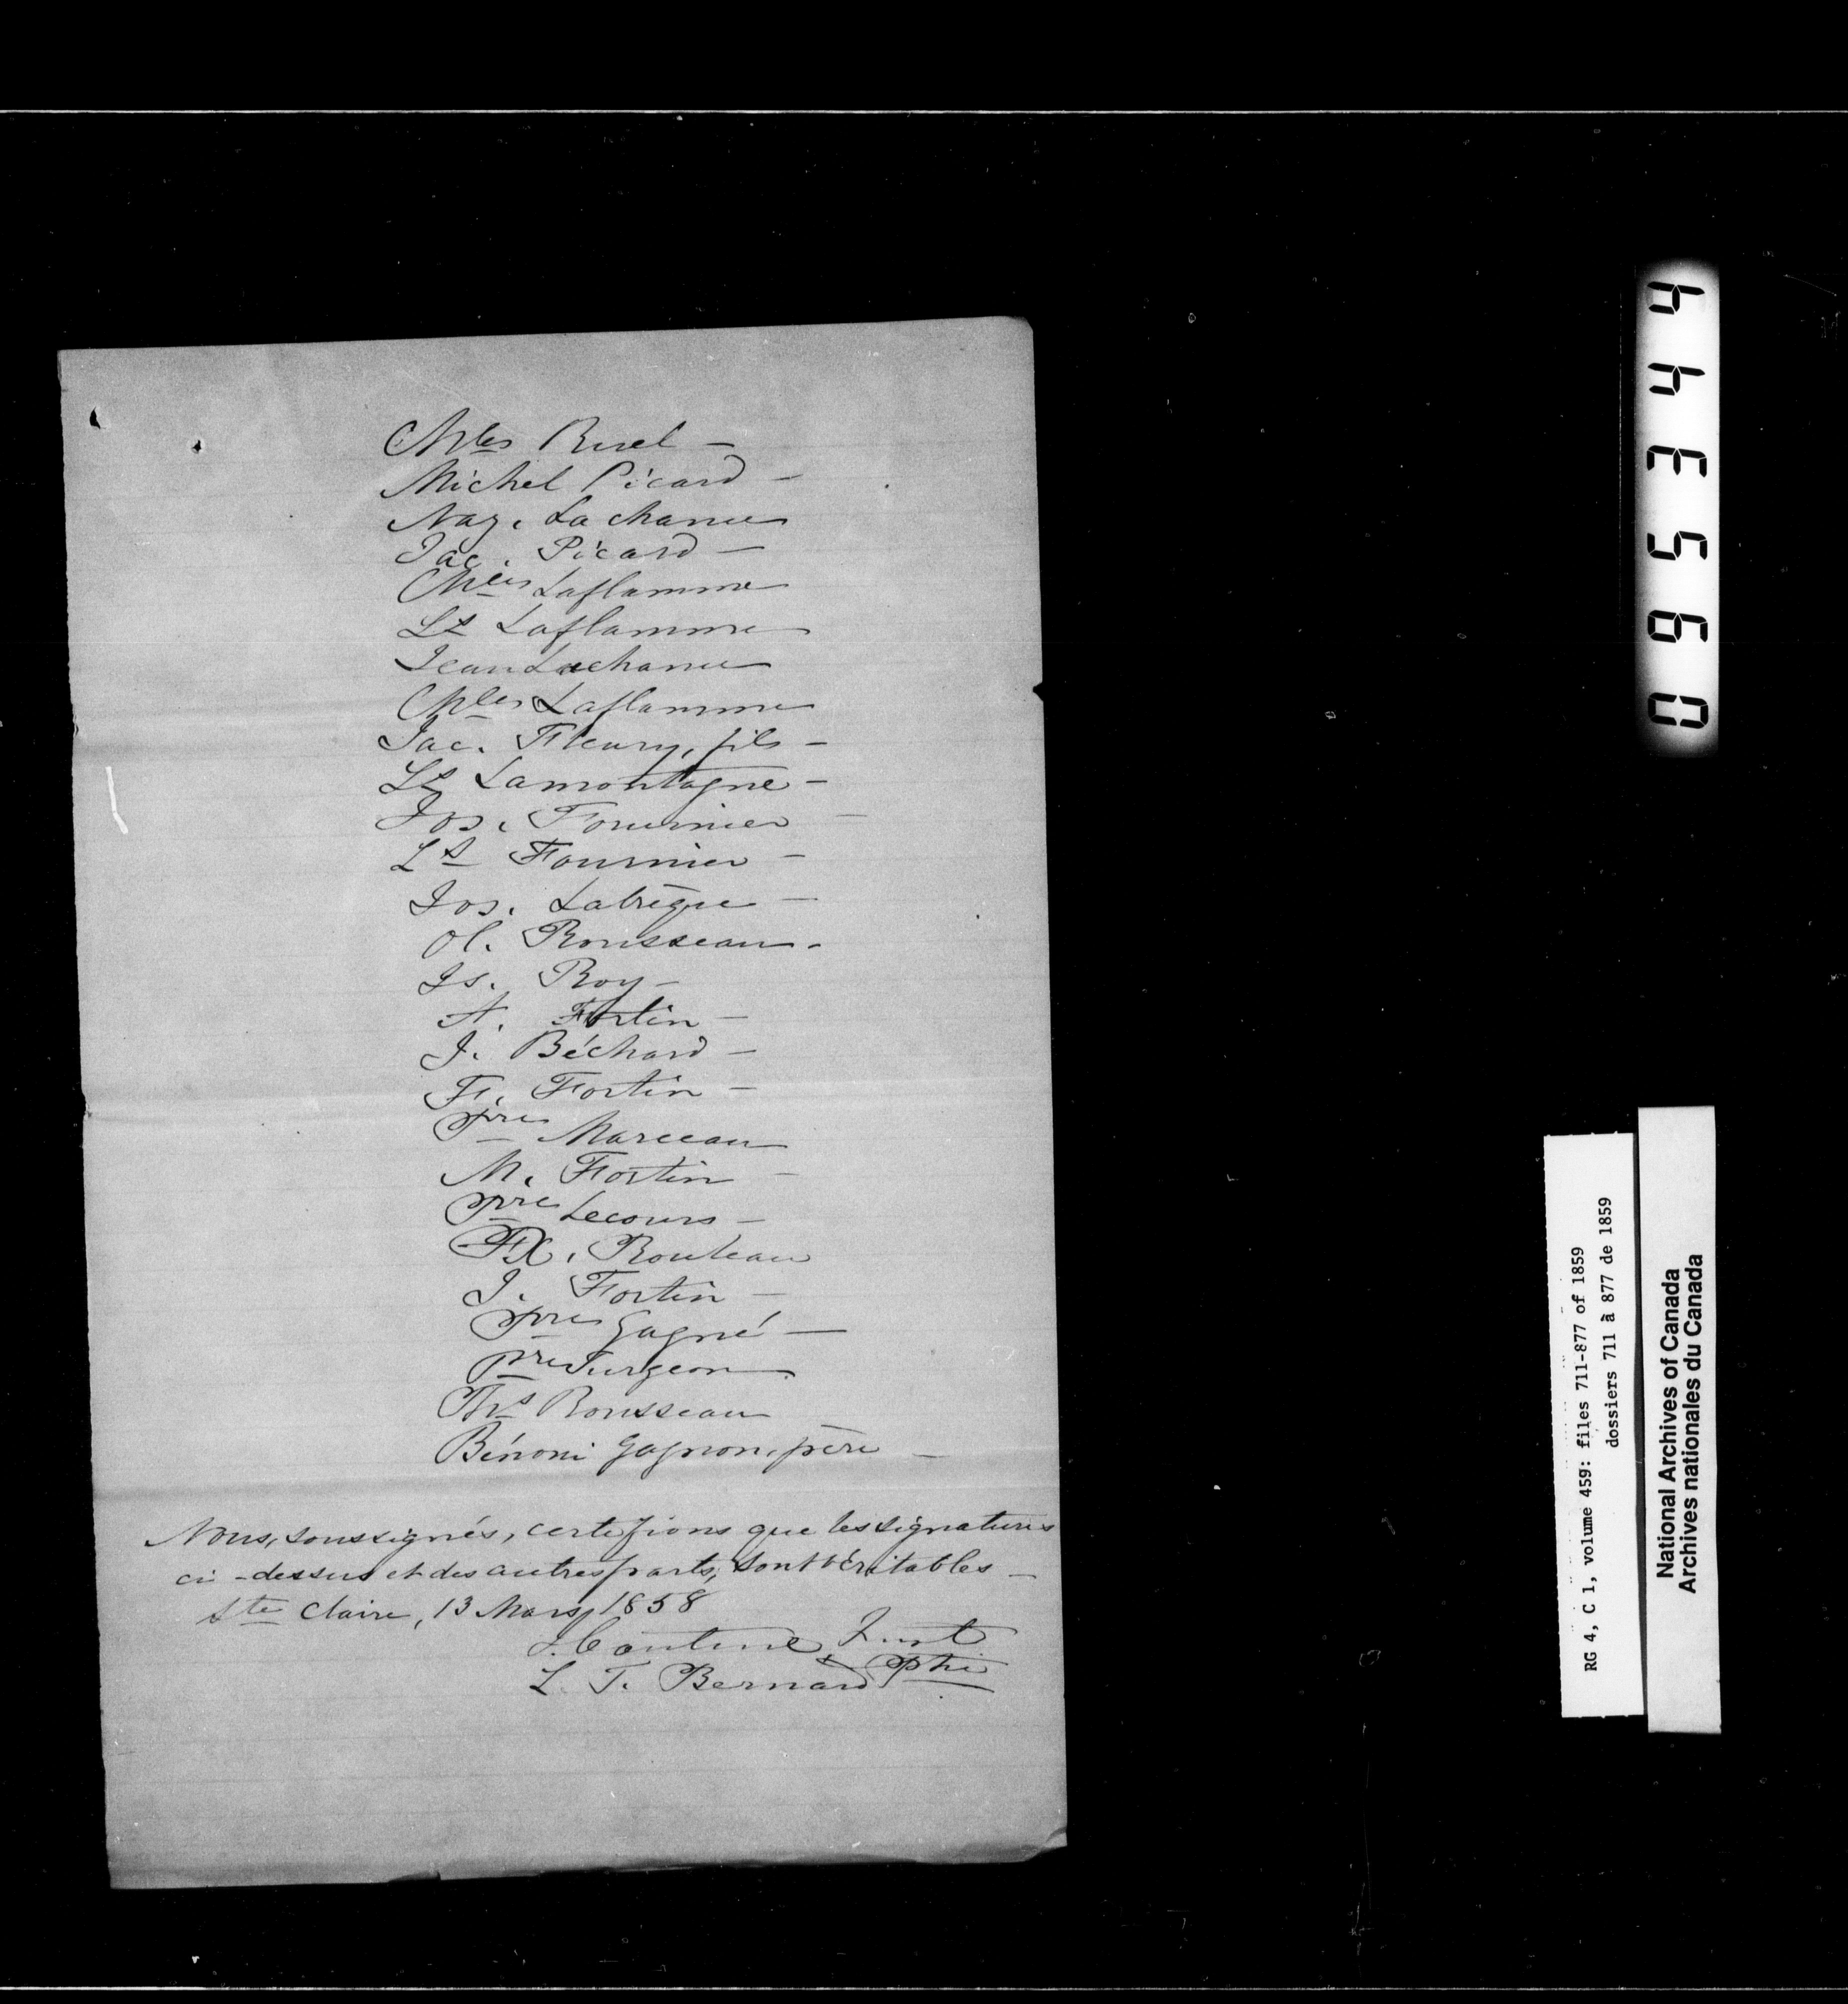 Chles Ruel –
Michel Picard –
Naz. Lachance
Jac. Picard –
Chles Laflamme
Ls Laflamme
Jean Lachance
Chles Laflamme
Jac. Fleury, fils –
Ls Lamontagne –
Jos. Fournier –
Ls Fournier –
Jos. Labrèque –
Ol. Rousseau –
Is. Roy –
A. Fortin –
J. Béchard –
F. Fortin –
Pre Marceau
M. Fortin –
Pre Lecours –
FX. Rouleau
J. Fortin –
Pre Gagné –
Pre Turgeon
Ths Rousseau
Bénoni Gagnon, père –
Nous, soussignés, certifions que les signatures
ci-dessus et des autres parts, sont véritables –
Ste Claire, 13 Mars 1858
L. T. Bernard
095344
RG 4, C 1, volume 459: files 711-877 of 1859
dossiers 711 à 877 de 1859
National Archives of Canada
Archives nationales du Canada